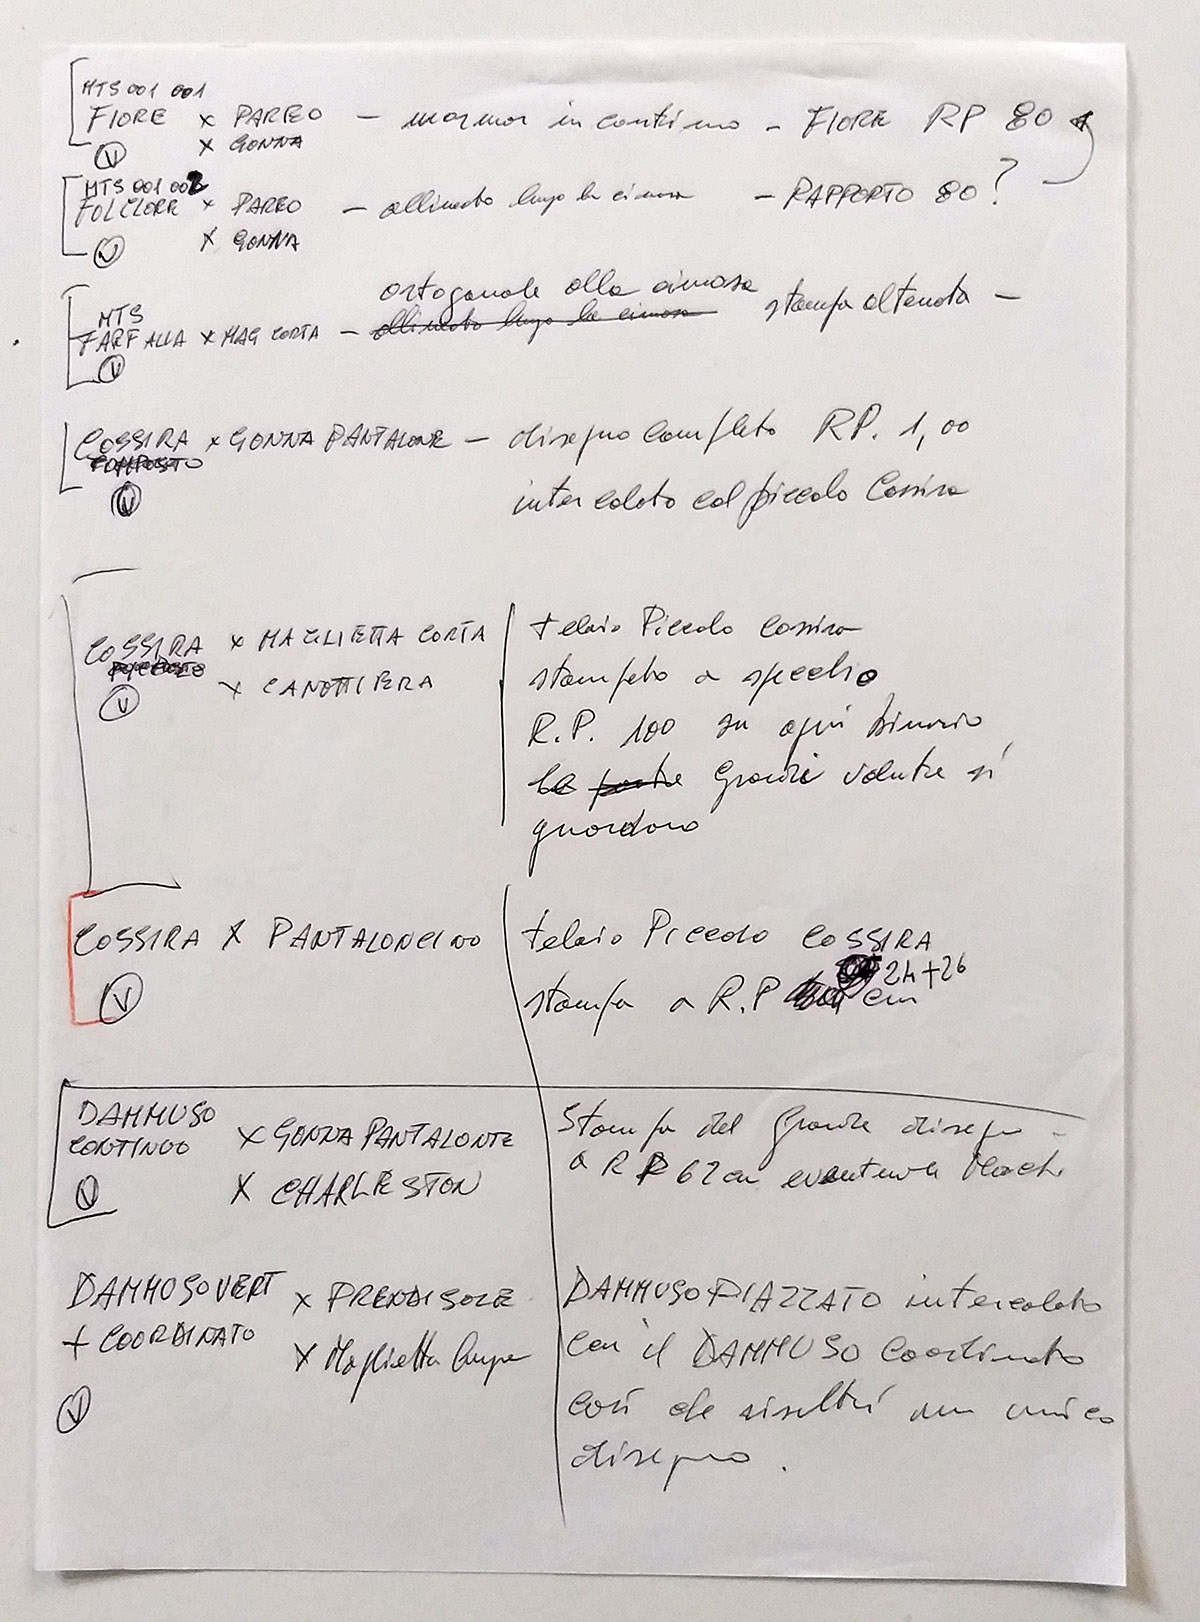 MTS 001 001
FIORE x PAREO — mormor in continuo - FIORE RP 80
x GONNA
V
MTS 001 002
FOLCLORE x PAREO — allineato lungo la cimosa - RAPPORTO 80?
x GONNA
V
ortogonale alla cimosa stampa altenata —
MTS
FARFALLA x MAG CORTA — allineato lungo la cimosa
V
COSSIRA x GONNA PANTALONE — disegno completo RP. 1,00
COMPOSTO
V
intercalato col piccolo Cossira
COSSIRA x MAGLIETTA CORTA telaio Piccolo Cossira
x CANOTTIERA stampato a specchio
V
R.P. 100 su ogni binario
le grandi volute si
guardano
COSSIRA x PANTALONCINO telaio Piccolo COSSIRA
24+26
V stampa a R.P cm
DAMMUSO Stampa del grande disegno -
CONTINUO x GONNA PANTALONE a RP 62 cm
V x CHARLESTON
DAMMUSO VERT x PRENDISOLE DAMMUSO PIAZZATO intercalato
+ COORDINATO x Maglietta lunga con il DAMMUSO Coordinato
V così che risulti un unico
disegno.